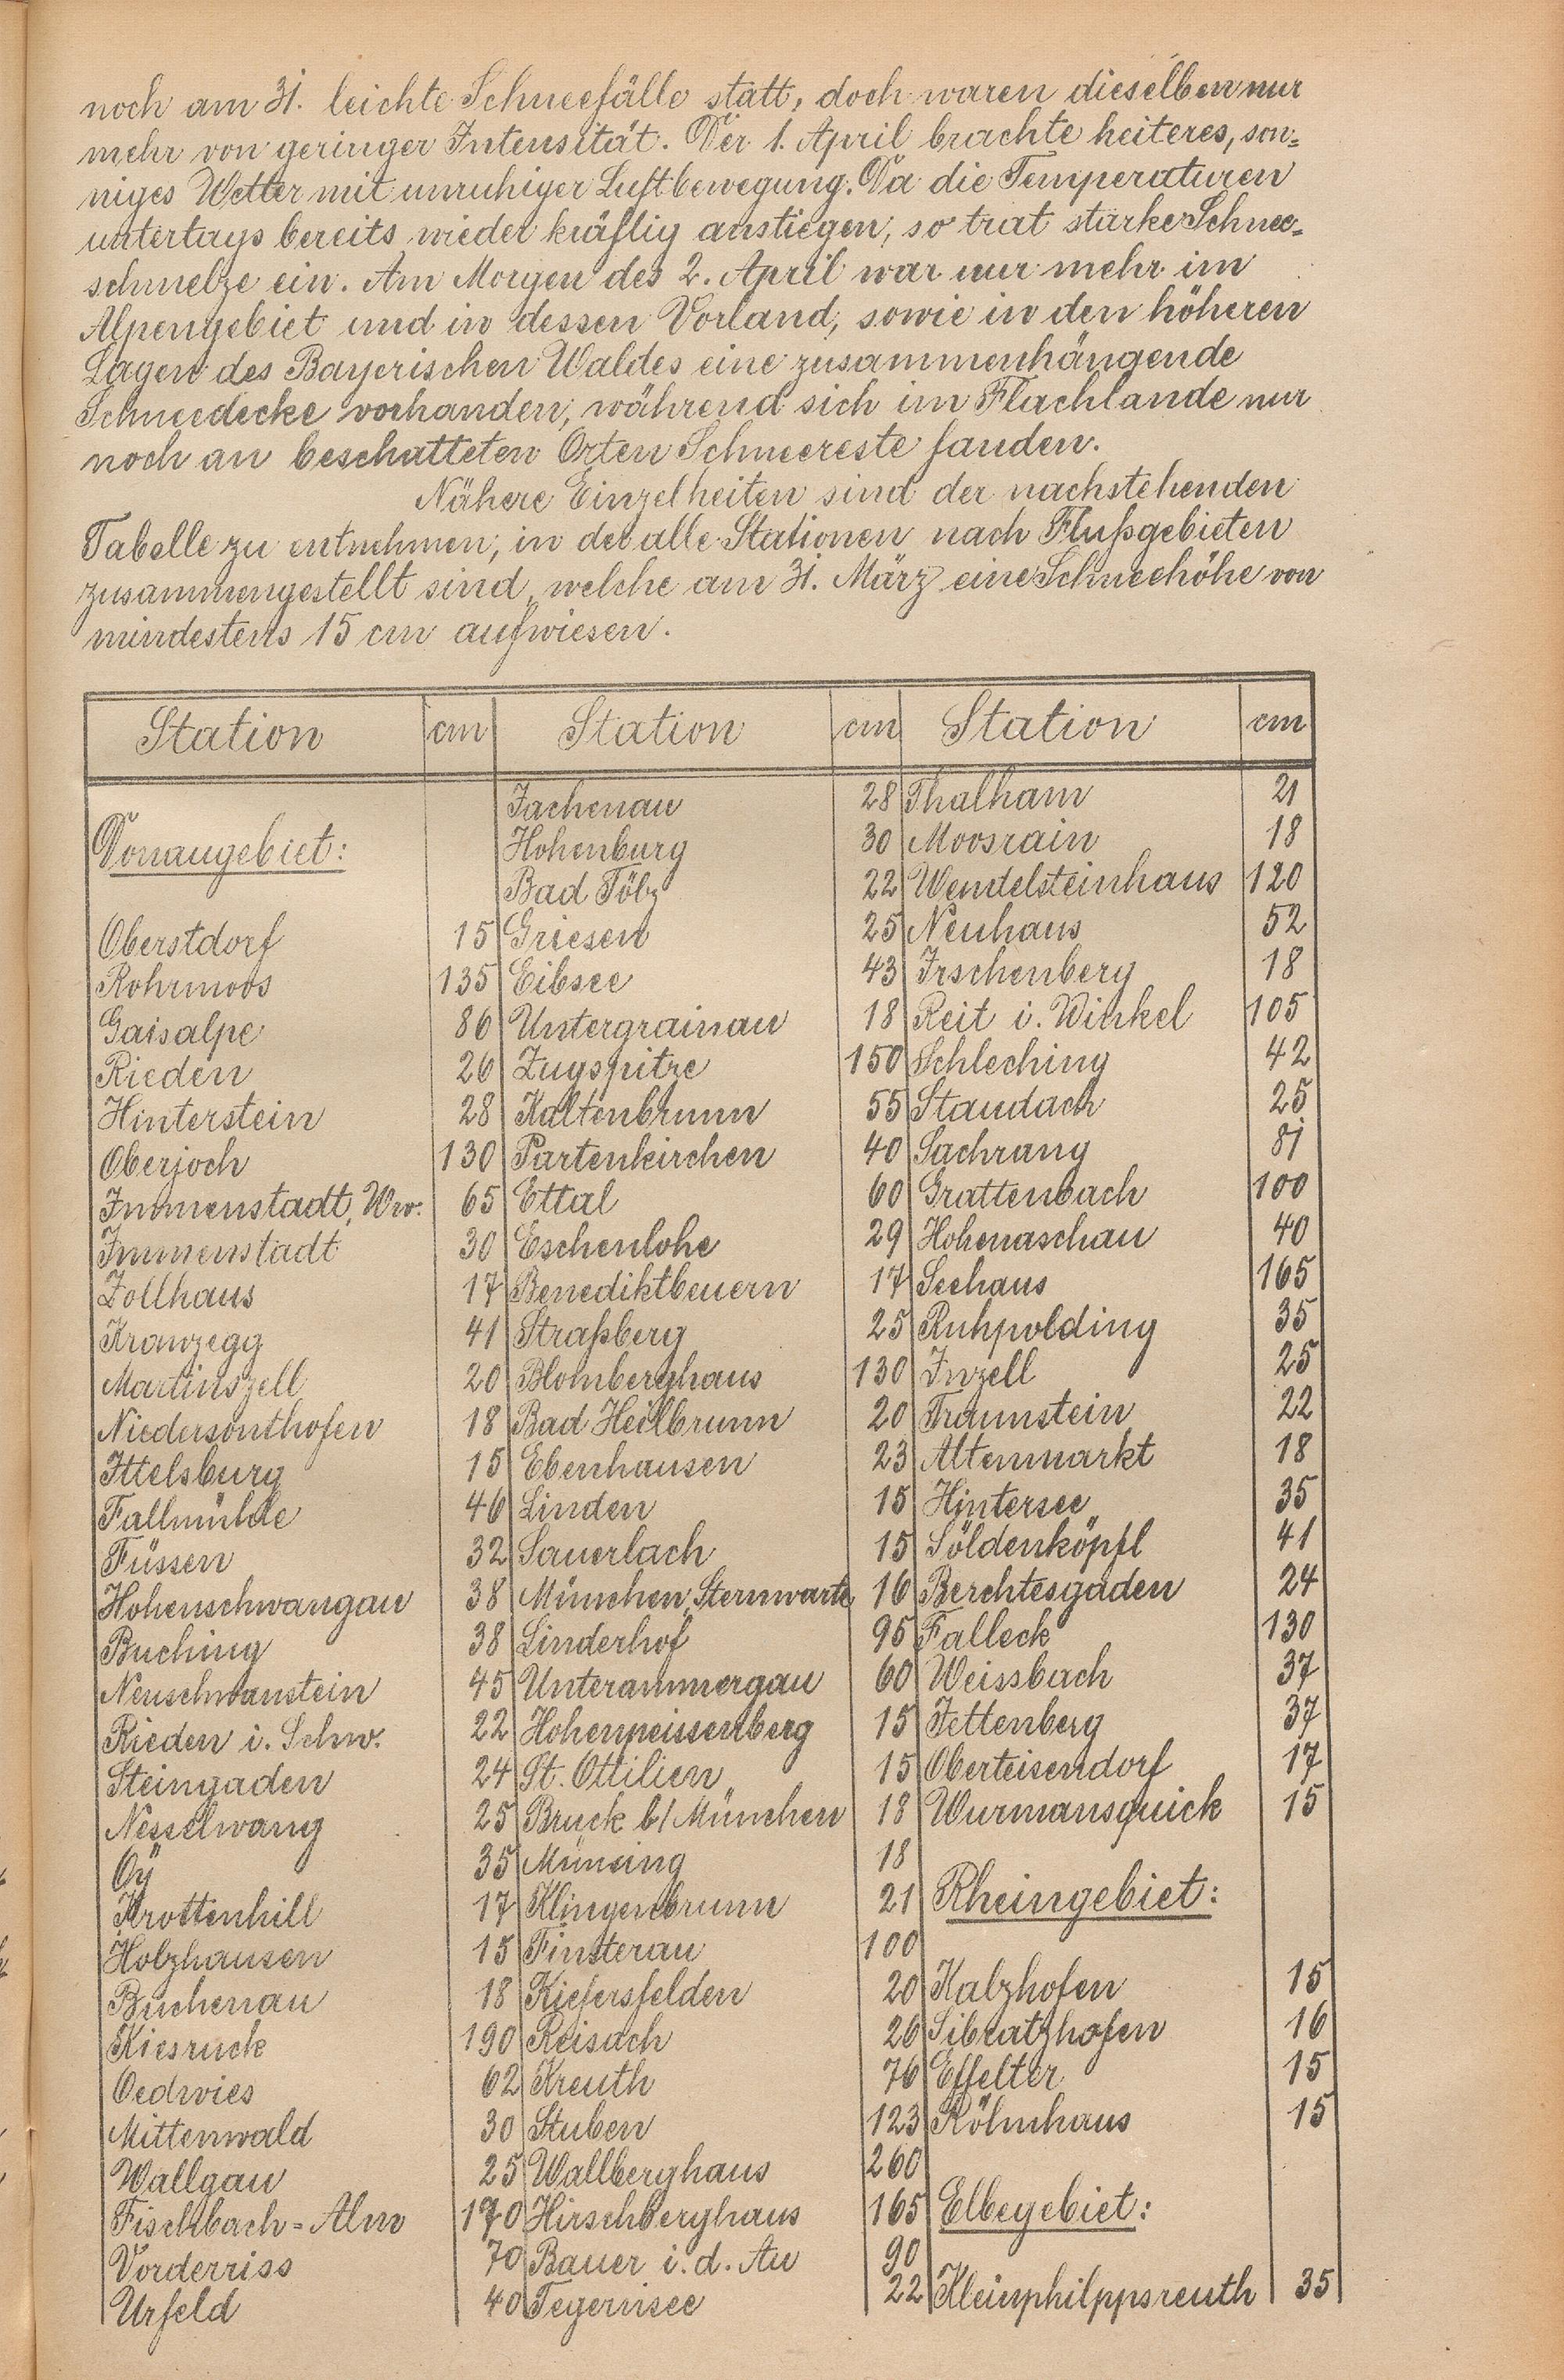 noch am 31. leichte Schneefälle statt, doch waren dieselben nur
mehr von geringer Intensität. Der 1. April brachte heiteres, son=
niges Wetter mit unruhiger Luftbewegung. Da die Temperaturen
untertags bereits wieder kräftig anstiegen, so trat starke Schnee=
schmelze ein. Am Morgen des 2. April war nur mehr im
Alpengebiet und in dessen Vorland, sowie in den höheren
Lagen des Bayerischen Waldes eine zusammenhängende
Schneedecke vorhanden, während sich im Flachlande nur
noch an beschatteten Orten Schneereste fanden.
Nähere Einzelheiten sind der nachstehenden
Tabelle zu entnehmen, in der alle Stationen nach Flußgebieten
zusammengestellt sind, welche am 31. März eine Schneehöhe von
mindestens 15 cm aufwiesen.
Station cm Station cm Station cm
Jachenau 28 Thalham 21
Donaugebiet: Hohenburg 30 Moosrain 18
Bad Tölz 22 Wendelsteinhaus 120
Oberstdorf 15 Griesen 25 Neuhaus 52
Rohrmoos 135 Eibsee 43 Irschenberg 18
Gaisalpe 86 Untergrainau 18 Reit i. Winkel 105
Rieden 26 Zugspitze 150 Schleching 42
Hinterstein 28 Kaltenbrunn 55 Staudach 25
Oberjoch 130 Partenkirchen 40 Sachrang 81
Immenstadt, Ww. 65 Ettal 60 Grattenbach 100
Immenstadt 30 Eschenlohe 29 Hohenaschau 40
Zollhaus 17 Benediktbeuern 17 Seehaus 165
Kranzegg 41 Straßberg 25 Ruhpolding 35
Martinszell 20 Blomberghaus 130 Inzell 25
Niedersonthofen 18 Bad Heilbrunn 20 Traunstein 22
Ittelsburg 15 Ebenhausen 23 Altenmarkt 18
Fallmühle 46 Linden 15 Hintersee 35
Füssen 32 Sauerlach 15 Söldenköpfl 41
Hohenschwangau 38 München, Sternwarte 16 Berchtesgaden 24
Buching 38 Linderhof 95 Falleck 130
Neuschwanstein 45 Unterammergau 60 Weissbach 37
Rieden i. Schw. 22 Hohenpeissenberg 15 Jettenberg 37
Steingaden 24 St. Ottilien 15 Oberteisendorf 17
Nesselwang 25 Bruck b/ München 18 Wurmansquick 15
Oy 35 Münsing 18
Krottenhill 17 Klingenbrunn 21 Rheingebiet:
Holzhausen 15 Finsterau 100
Buchenau 18 Kiefersfelden 20 Kalzhofen 15
Kiesruck 190 Reisach 26 Sibratzhofen 16
Oedwies 62 Kreuth 76 Effelter 15
Mittenwald 30 Stuben 123 Röhnhaus 15
Wallgau 25 Wallberghaus 260
Fischbach=Alm 170 Hirschberghaus 165 Elbegebiet:
Vorderriss 70 Bauer i. d. Au 90
Urfeld 40 Tegernsee 22 Kleinphilppsreuth 35